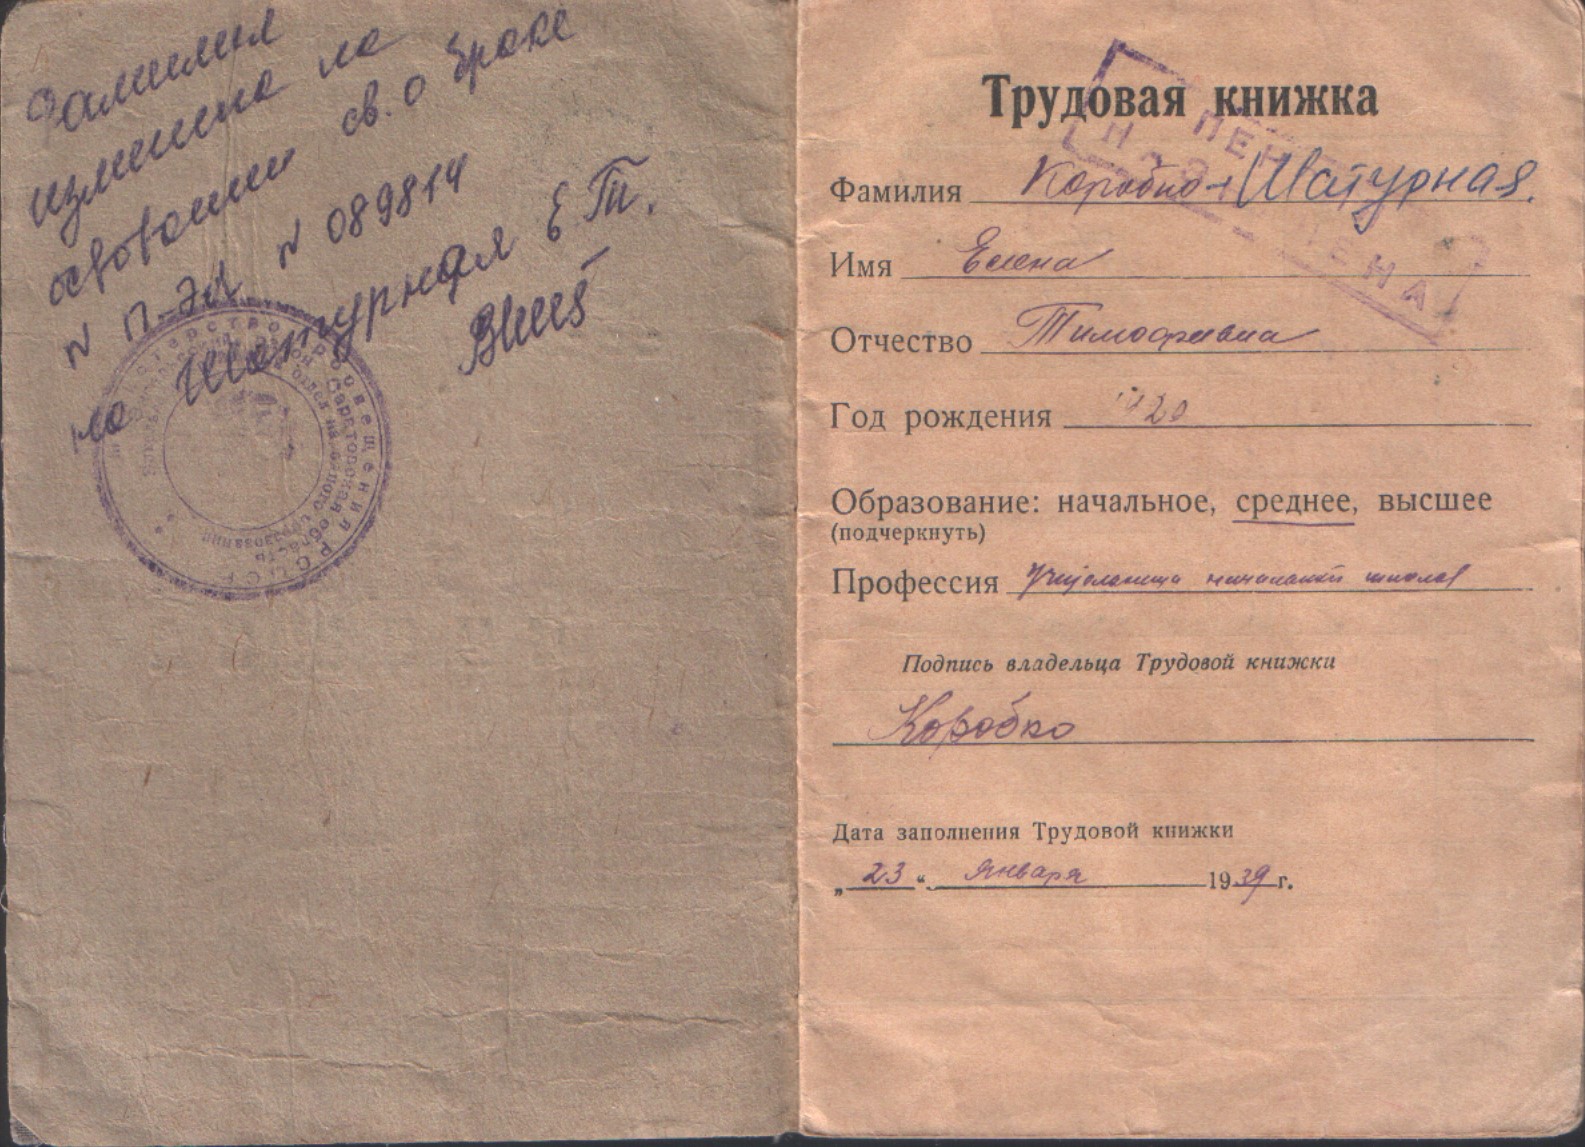 Фамилия
изменена на
основании св. о браке
N П-ЭД N 089814
на Шатурная Е.Т.
министерство просвещения РСФСР
Саратовская область
отдел народного образования
Трудовая книжка
ПЕН
Фамилия Коробко Шатурная.
Имя Елена
Отчество Тимофеевна
Год рождения 1920
Образование: начальное, среднее, высшее
(подчеркнуть)
Профессия Учительница начальной школы
Подпись владельца Трудовой книжки
Коробко
Дата заполнения Трудовой книжки
„23“ января 1939 г.